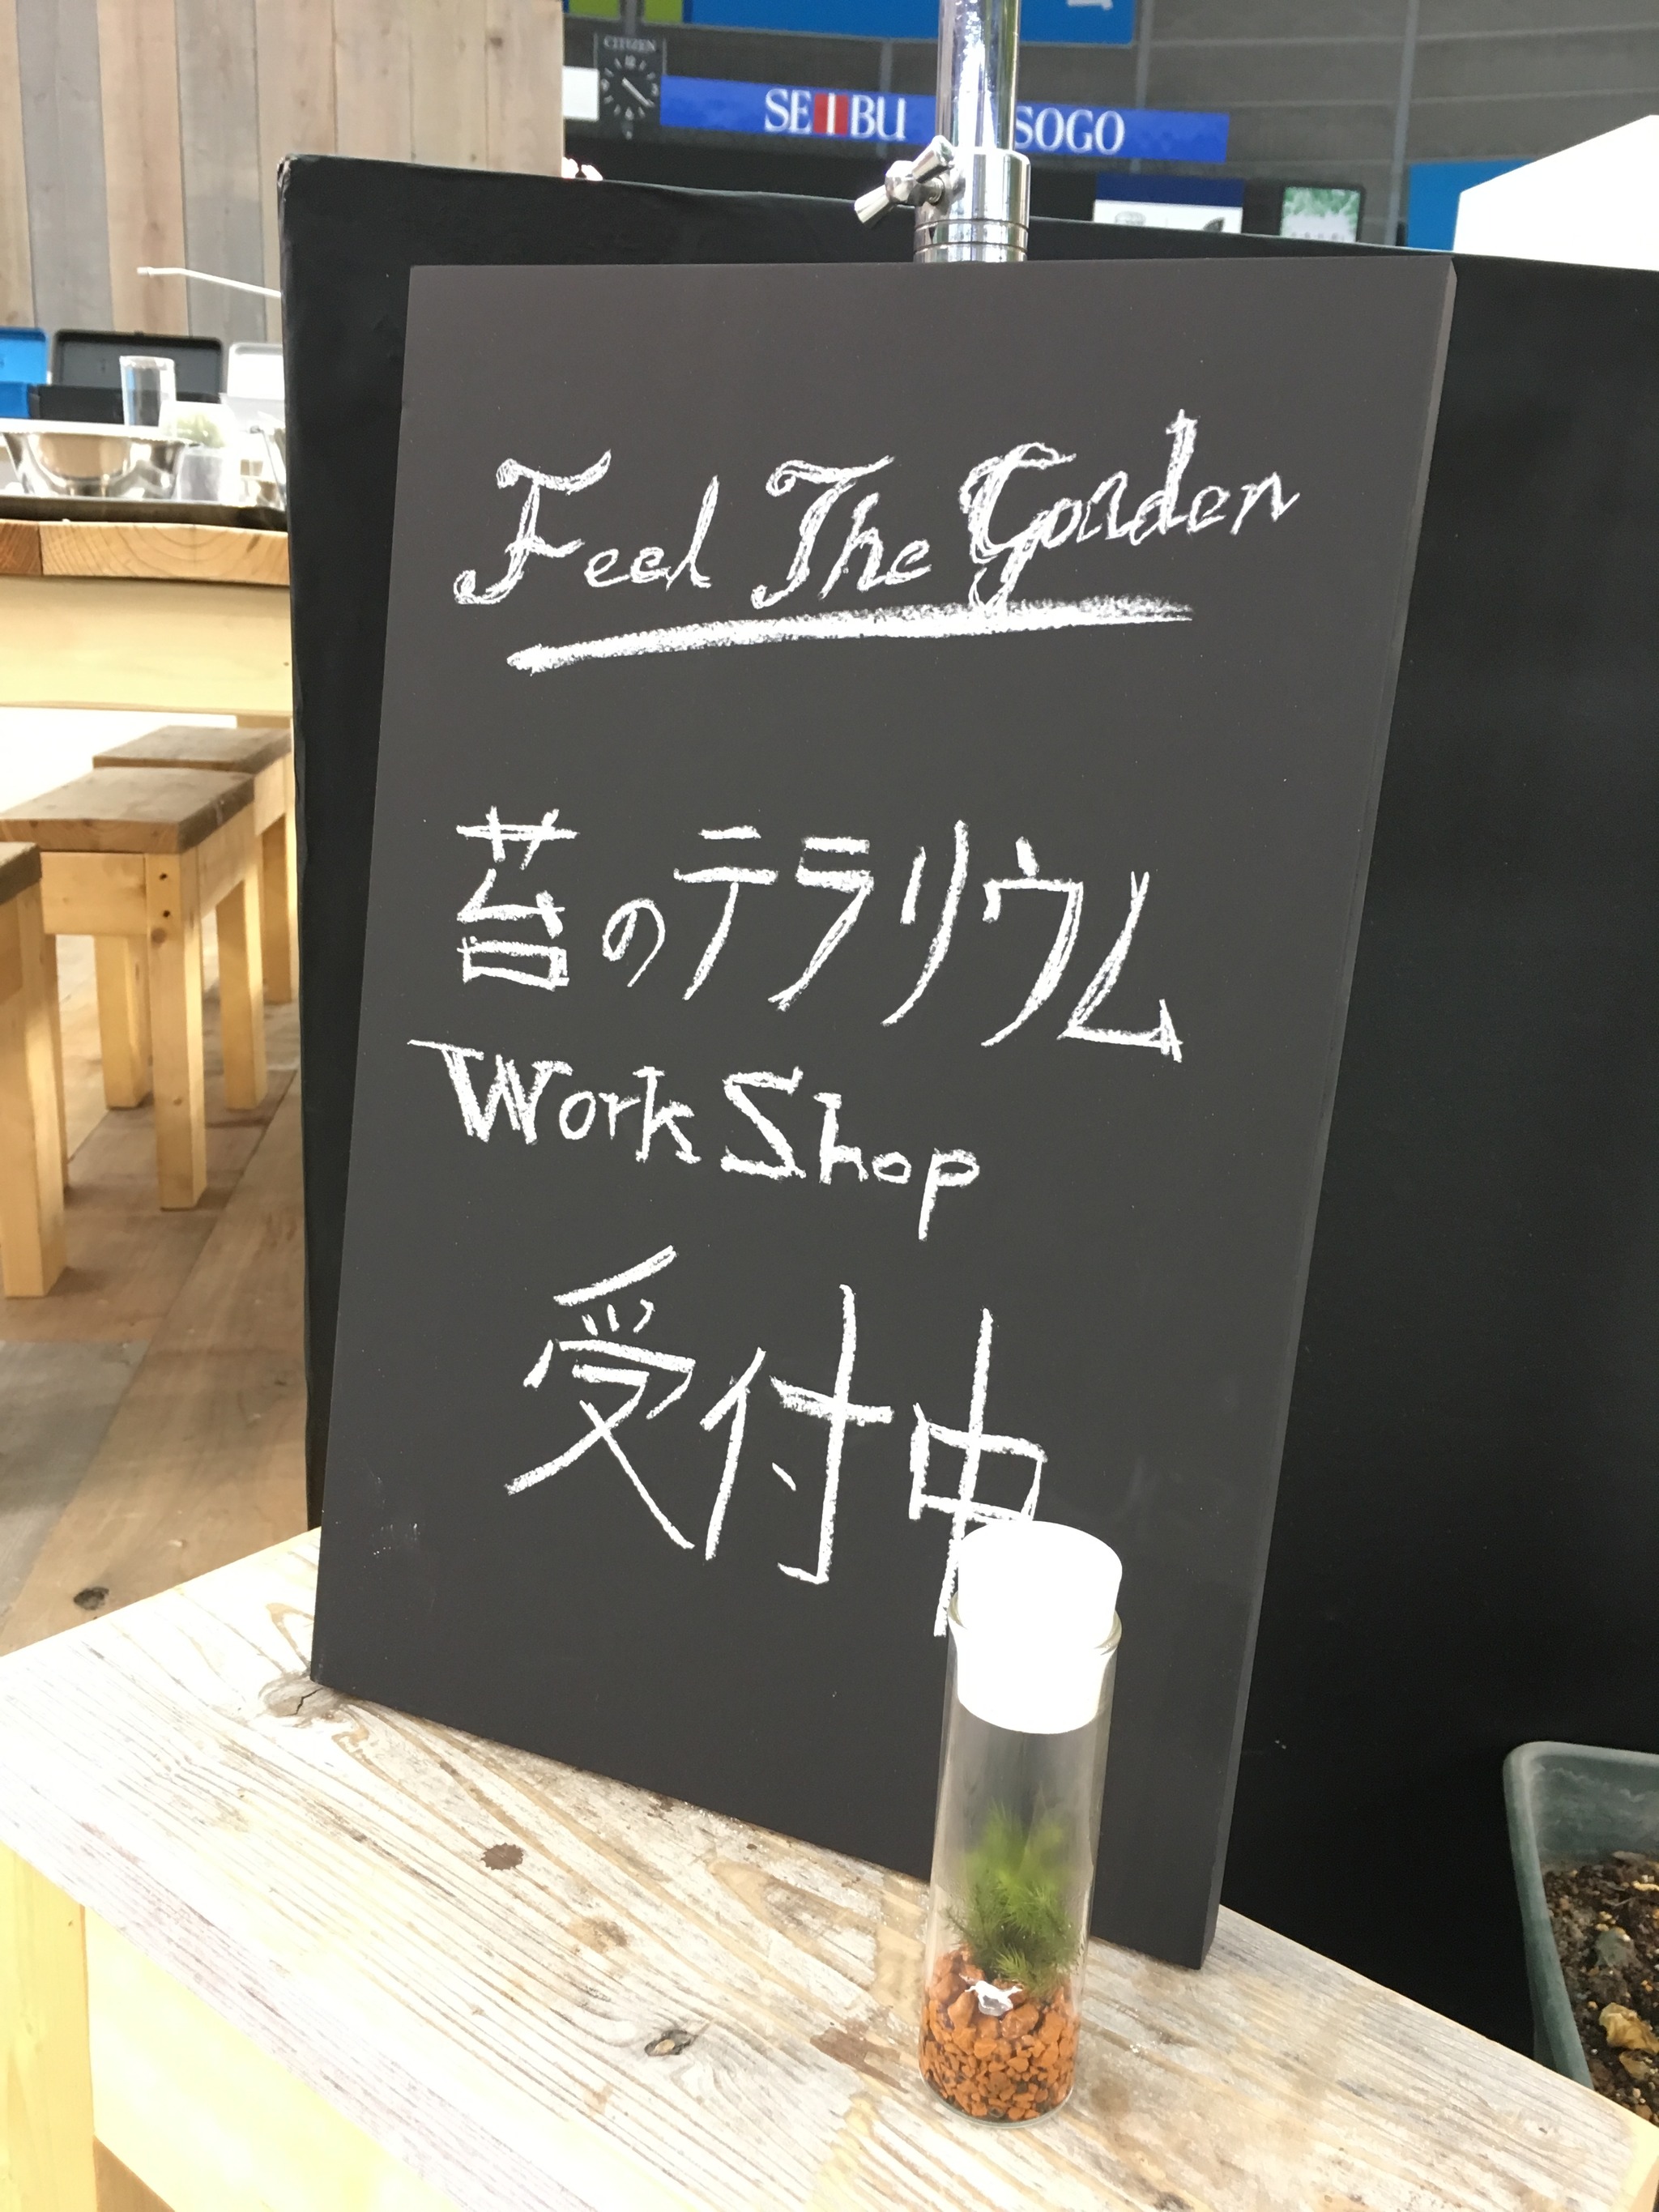 CITIZEN
SEIBU SOGO
Feel The Garden
苔のテラリウム
Work Shop
受付中